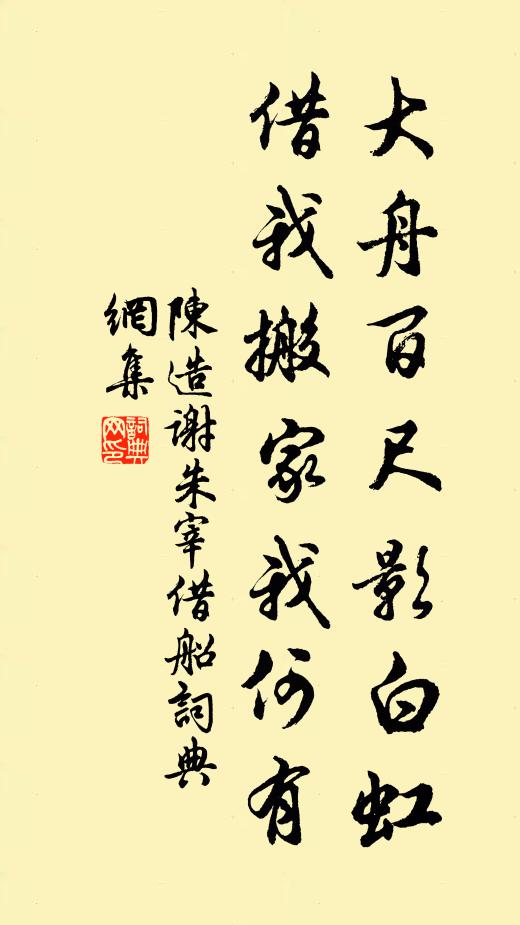 大舟百尺影白虹
借我搬家我何有
陳造謝朱宰借船詞典
網集
詞典網印